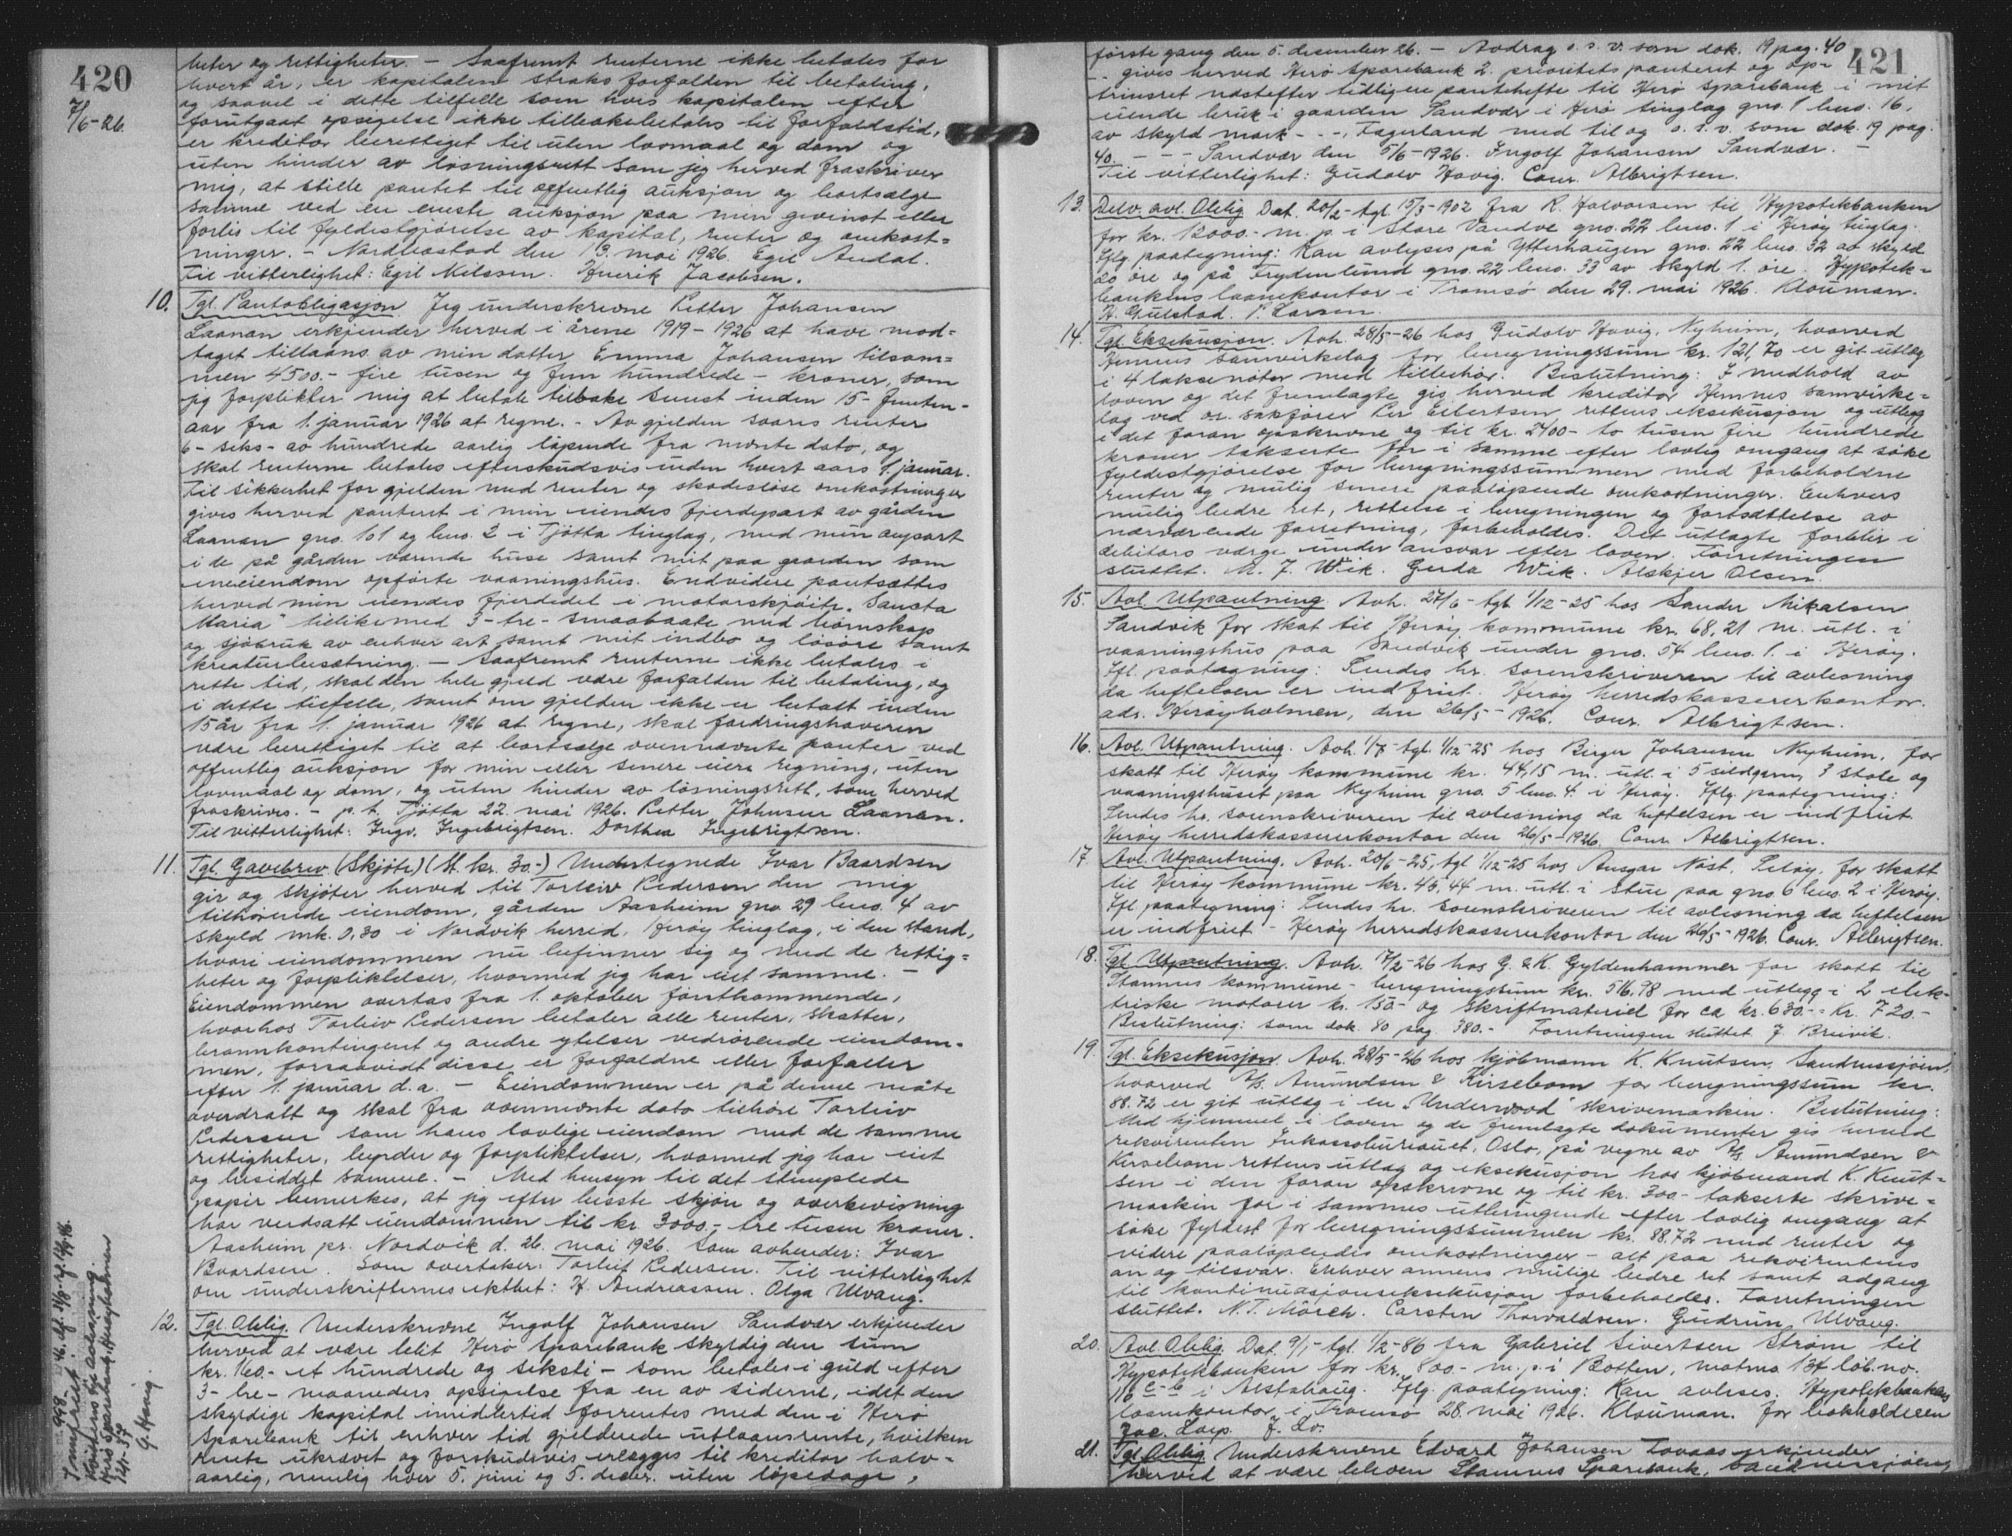 420
7/6-26.
heter og rettigheter. - Saafremt renterne ikke betales for
hvert år, er kapitalen straks forfalden til betaling,
og saavel i dette tilfelle som hvis kapitalen efter
forutgaat opsigelse ikke tilbakebetales til forfaldstid,
er kreditor berettiget til uten lovmaal og dom og
uten hinder av løsningsrett som jeg herved fraskriver
mig, at stille pantet til offentlig auksjon og bortsælge
samme ved en eneste auksjon paa min gevinst eller
forlis til fyldestgjørelse av kapital, renter og omkost-
ninger. - Nordleastad den 13. mai 1926. Egil Andal.
Til vitterlighet: Egil Nilssen. Henrik Jacobsen.
10. Tgl. Pantobligasjon Jeg underskrevne Petter Johansen
Laanan erkjender herved i årene 1919-1926 at have mod-
taget tillaans av min datter Emma Johansen tilsam-
men 4500.- fire tusen og fem hundrede - kroner, som
jeg forplikter mig at betale tilbake senest inden 15 - femten-
aar fra 1. januar 1926 at regne. - Av gjelden svares renter
6 - seks - av hundrede aarlig løpende fra nævnte dato, og
skal renterne betales efterskudsvis inden hvert aars 1. januar.
Til sikkerhet for gjelden med renter og skadesløse omkostninger
gives herved panteret i min eiendes fjerdepart av gården
Laanan gno. 101 og bno. 2 i Tjøtta tinglag, med min anpart
i de på gården værende huse samt mit paa gaarden som
eneeiendom opførte vaaningshus. Endvidere pantsættes
herved min eiendes fjerdedel i motorskjøite "Sancta
Maria" tillikemed 3 - tre - smaabaate med tiørnskap
og sjøbruk av enhver art samt mit indbo og løsøre samt
kreaturbesætning. - Saafremt renterne ikke betales i
rette tid, skal den hele gjeld være forfalden til betaling, og
i dette tilfelle, samt om gjelden ikke er betalt inden
15 år fra 1. januar 1926 at regne, skal fordringshaveren
være berettiget til at bortsælge ovennævnte panter ved
offentlig auksjon for min eller senere eiers regning, uten
lovmaal og dom, og uten hinder av løsningsrett, som herved
fraskrives. - p. t. Tjøtta 22. mai 1926. Petter Johansen Laanan.
Til vitterlighet: Ingv. Ingebrigtsen. Dorthea Ingebrigtsen.
11. Tgl. Gavebrev (Skjøte) (St. kr. 30.-) Undertegnede Ivar Baardsen
gir og skjøter herved til Torleiv Pedersen den mig
tilhørende eiendom, gården Aasheim gno 29 bno. 4 av
skyld mk. 0,30 i Nordvik herred, Herøy tinglag, i den stand,
hvori eiendommen nu befinner sig og med de rettig-
heter og forpliktelser, hvormed jeg har eiet samme. -
Eiendommen overtas fra 1. oktober førstkommende,
hvorhos Torleiv Pedersen betaler alle renter, skatter,
brannkontingent og andre ytelser vedrørende eiendom-
men, forsaavidt disse er forfaldne eller forfaller
efter 1. januar d. a. - Eiendommen er på denne måte
overdratt og skal fra ovennevnte dato tilhøre Torleiv
Pedersen som hans lovlige eiendom med de samme
rettigheter, byrder og forpliktelser, hvormed jeg har eiet
og besiddet samme. - Med hensyn til det stemplede
papir bemerkes, at jeg efter beste skjøn og overbevisning
har verdsatt eiendommen til kr. 3000.- tre tusen kroner.
Aasheim pr. Nordvik d. 26. mai 1926. Som avhender: Ivar
Baardsen. Som overtaker: Torleif Pedersen. Til vitterlighet
om underskrifternes ekthet: H. Andreassen. Olga Ulvang.
12. Tgl. Oblig. Underskrevne Ingolf Johansen Sandvær erkjender
herved at være blit Herø Sparebank skyldig den sum
kr. 160.- et hundrede og seksti - som betales i guld efter
3 - tre - maaneders opsigelse fra en av siderne, idet den
skyldige kapital imidlertid forrentes med den i Herø
Sparebank til enhver tid gjeldende utlaansrente, hvilken
rente ukrævet og forskudsvis erlægges til kreditor halv-
aarlig, nemlig hver 5. juni og 5. decbr. uten løpedage,
Kvitteres til avlysning.
Herø Sparebank, Herøyholmen
14/1-37
G. Hovig
421
første gang den 5. desember 26. - Avdrag o. s. v. som dok. 19 pag. 40
- gives herved Herø Sparebank 2. prioritets panteret og op-
trinsret næstefter tidligere pantehefte til Herø sparebank i mit
eiende bruk i gaarden Sandvær i Herø tinglag gno. 1 bno. 16,
av skyld mark - - -, Fagerland med til og o. s. v. som dok. 19 pag.
40. - - - Sandvær den 5/6-1926. Ingolf Johansen Sandvær. -
Til vitterlighet: Gudolv Hovig. Conr. Albrigtsen.
13. Delv. avl. Oblig. Dat. 20/2- tgl. 15/3-1902 fra R. Halvorsen til Hypotekbanken
for kr. 12000.- m. p. i Store Vandve gno. 22 bno. 1 i Herøy tinglag.
Iflg. paategning: Kan avlyses på Ytterhaugen gno. 22 bno. 32 av skyld
25 øre og på Frydenlund gno. 22 bno. 33 av skyld 1. øre. Hypotek-
bankens laanekontor i Tromsø den 29. mai 1926. Klouman.
H. Gulstad. P. Larsen.
14. Tgl. Eksekusjon. Avh. 28/5-26 hos Gudolv Hovig, Nyheim, hvorved
Hemnes Samvirkelag for beregningssum kr. 121,70 er git utlæg
i 4 laksenøter med tilbehør. Beslutning: I medhold av
loven og det fremlagte gis herved kreditor Hemnes samvirke-
lag ved o.r. sakfører Per Eilertsen, rettens eksekusjon og utlegg
i det foran opskrevne og til kr. 2400.- to tusen fire hundrede
kroner takserte for i samme efter lovlig omgang at søke
fyldestgjørelse for beregningssummen med forbeholdne
renter og mulig senere paaløpende omkostninger. Enhvers
mulig bedre ret, rettelse i beregningen og fortsættelse av
nærværende forretning, forbeholdes. Det utlagte forblir i
debitors værge under ansvar efter loven. Forretningen
sluttet. M. J. Wik. Gerda Wik. Alskjer Olsen.
15. Avl. Utpantning Avh. 27/6- tgl. 1/12-25 hos Sander Mikalsen
Sandvik for skat til Herøy kommune kr. 68,21 m. utl. i
vaaningshus paa Sandvik under gno. 54 bno. 1. i Herøy.
Ifl. paategning: Sendes hr. sorenskriveren til avlesning
da heftelsen er indfriet. Herøy herredskassererkontor.
adr. Herøyholmen, den 26/5-1926. Conr. Albrigtsen.
16. Avl. Utpantning. Avh. 1/7- tgl. 1/12-25 hos Birger Johansen Nyheim, for
skatt til Herøy kommune kr. 44,15 m. utl. i 5 sildgarn, 3 stole og
vaaningshuset paa Nyheim gno. 5 bno. 4. i Herøy. Iflg. paategning:
Sendes hr. sorenskriveren til avlesning da heftelsen er indfriet.
Herøy herredskassererkontor den 26/5-1926. Conr. Albrigtsen.
17. Avl. Utpantning. Avh. 20/6-25, tgl. 1/12-25 hos Ansgar Nost, Seløy, for skatt
til Herøy kommune kr. 45,44 m. utl. i stue paa gno. 6 bno. 2 i Herøy.
Ifl. paategning: Sendes hr. sorenskriveren til avlesning da heftelsen
er indfriet. - Herøy herredskassererkontor den 26/5-1926. Conr. Albrigtsen.
18. Tgl. Utpantning. Avh. 17/2-26 hos G. & K. Gyldenhammer for skatt til
Stamnes kommune - beregningssum kr. 516,98 med utlegg i 2 elek-
triske motorer kr. 150.- og skriftmateriel for ca kr. 630.- : Kr. 720.-
Beslutning: som dok. 80 pag. 380.- Forretningen sluttet J. Breivik.
19. Tgl. Eksekusjon. Avh. 28/5-26 hos kjøbmann K. Knutsen, Sandnessjøen,
hvorved A/S. Amundsen & Kirsebom for beregningssum kr.
88.72 er git utlæg i en "Underwood" skrivemaskin. Beslutning:
Med hjemmel i loven og de fremlagte dokumenter gis herved
rekvirenten Inkassobureauet, Oslo, på vegne av A/S Amundsen &
Kirsebom rettens utlæg og eksekusjon hos kjøbmand K. Knut-
sen i den foran opskrevne og til kr. 300.- takserte skrive-
maskin for i sammes utbringende efter lovlig omgang at
søke fyldest for beregningssummen kr. 88.72 med renter og
videre paaløpendes omkostninger - alt paa rekvirentens
an og tilsvar. Enhver annens mulige bedre ret samt adgang
til kontinuasjonseksekusjon forbeholdes. Forretningen
sluttet. N. T. Mörch. Carsten Thorvaldsen. Gudrun Ulvang.
20. Avl. Oblig. Dat. 9/1- tgl. 1/2-86 fra Gabriel Sivertsen Strøm til
Hypotekbanken for kr. 800.- m. p. i Botten, matrno 137 løb. no.
116 c-6 i Alstahaug. Iflg. paategning: Kan avleses. Hypotekbankens
laanekontor i Tromsø 28. mai 1926. Klouman. for bokholderen
Jac. Coep. J. Lo.
21. Tgl. Oblig. Underskrevne Edvard Johansen Tovaas erkjender
herved at være bleven Stamnes Sparebank, Sandnessjøen,